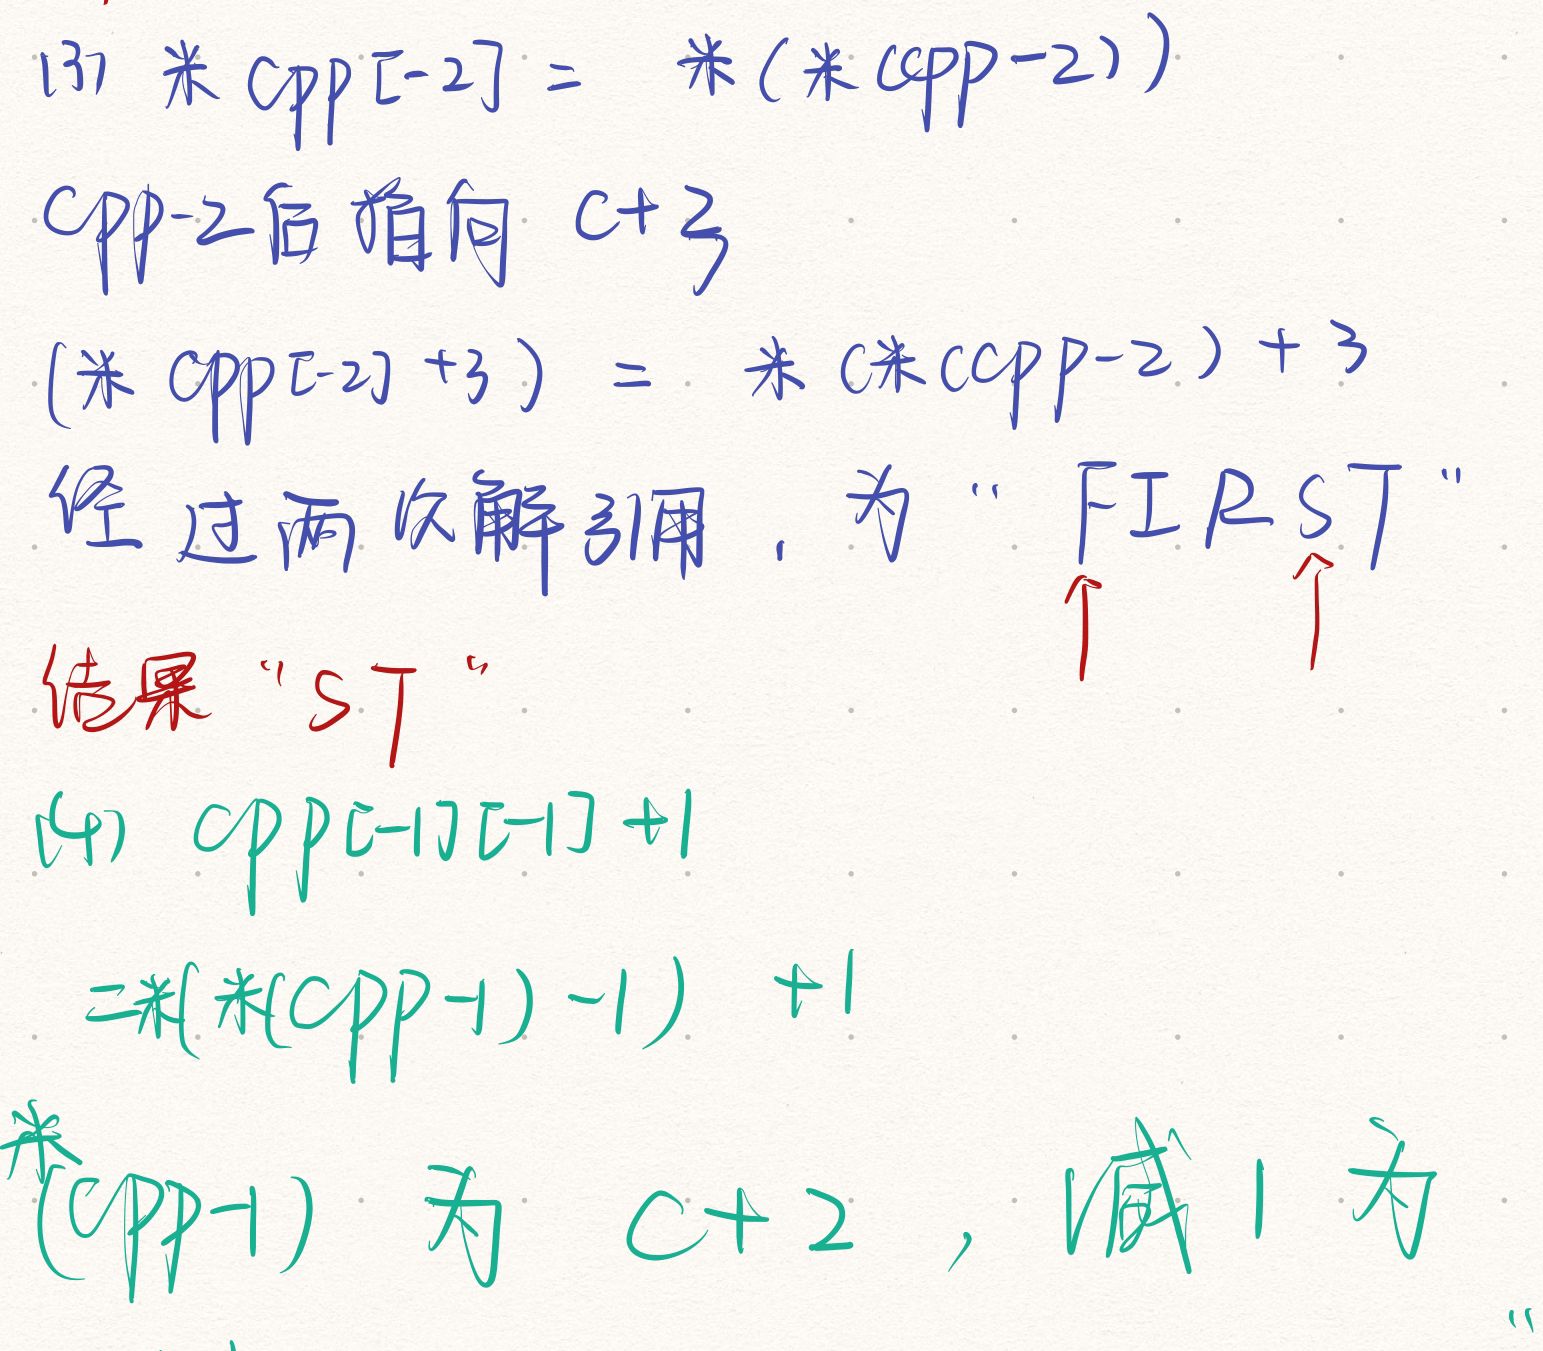 (3) *cpp[-2] = *(*(cpp-2))
cpp-2后指向 c+3
(*cpp[-2]+3) = *(*(cpp-2)+3
经过两次解引用,为"FIRST"
结果"ST"
(4) cpp[-1][-1]+1
=*(*(cpp-1)-1) +1
*(cpp-1) 为 c+2,减1为
"